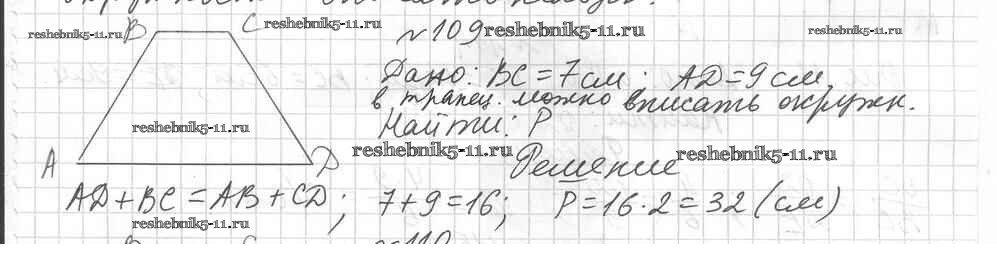 reshebnik5-11.ru B C reshebnik5-11.ru
№109 reshebnik5-11.ru reshebnik5-11.ru
Дано: BC = 7 см; AD = 9 см,
в трапец. можно вписать окружн.
Найти: P
reshebnik5-11.ru
A D reshebnik5-11.ru Решение reshebnik5-11.ru
AD + BC = AB + CD; 7 + 9 = 16; P = 16 · 2 = 32 (см)
reshebnik5-11.ru